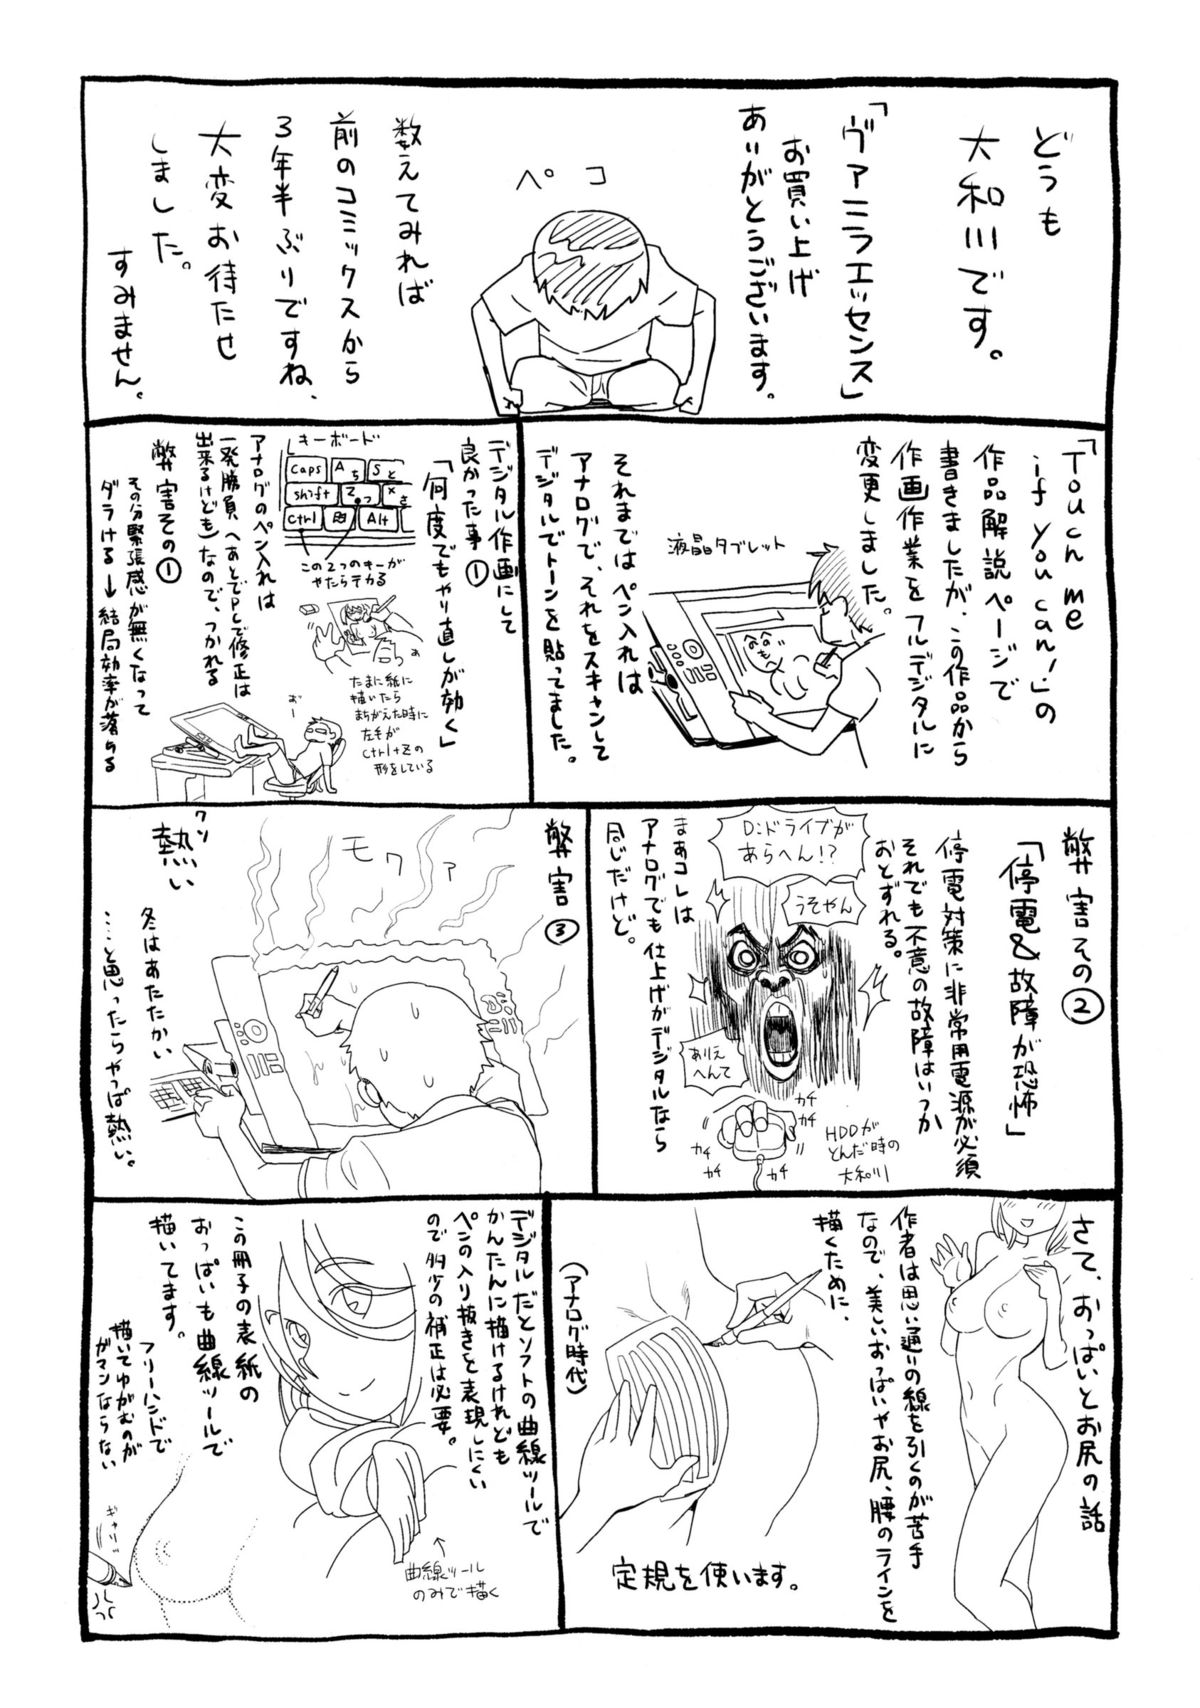 どうも
大和川です。
「ヴァニラエッセンス」
お買い上げ
ありがとうございます。
ペコ
数えてみれば
前のコミックスから
3年半ぶりですね、
大変お待たせ
しました。
すみません。
「Touch me
if you can!」の
作品解説ページで
書きましたが、この作品から
作画作業をフルデジタルに
変更しました。
液晶タブレット
それまではペン入れは
アナログで、それをスキャンして
デジタルでトーンを貼ってました。
デジタル作画にして
良かった事①
「何度でもやり直しが効く」
キーボード
Caps
A ち
S と
shift
Z っ
X さ
Ctrl
Alt
この2つのキーが
やたらテカる
たまに紙に
描いたら
まちがえた時に
左手が
Ctrl+Zの
形をしている
アナログのペン入れは
一発勝負(あとでPCで修正は
出来るけども)なので、つかれる
弊害その①
その分緊張感が無くなって
ダラける→結局効率が落ちる
おー
弊害その②
「停電&故障が恐怖」
停電対策に非常用電源が必須
それでも不意の故障はいつか
おとずれる。
D:ドライブが
あらへん!?
うそやん
ありえ
へんて
カチ
カチ
カチ
カチ
カチ
HDDが
とんだ時の
大和川
まぁコレは
アナログでも仕上げがデジタルなら
同じだけど。
弊害③
モワァ
クソ
熱い
冬はあたたかい
……と思ったらやっぱ熱い。
さて、おっぱいとお尻の話
作者は思い通りの線を引くのが苦手
なので、美しいおっぱいやお尻、腰のラインを
描くために
(アナログ時代)
定規を使います。
デジタルだとソフトの曲線ツールで
かんたんに描けるけれども
ペンの入り抜きを表現しにくい
ので多少の補正は必要。
この冊子の表紙の
おっぱいも曲線ツールで
描いてます。
フリーハンドで
描いてゆがむのが
ガマンならない
ギャリッ
曲線ツール
のみで描く